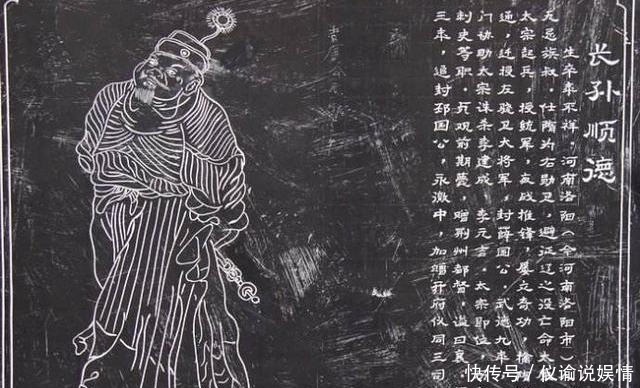 长孙顺德
生卒年不祥，河南洛阳（今河南洛阳市）
无忌族叔，仕隋为右勋卫，避征辽之没亡命太
太宗起兵，授统军，战锋，屡立奇功，擒
通，迁授左骁卫大将军，封薛国公，武德九年
门协助太宗诛杀李建成、李元吉。太宗即位，
刺史等职，贞观前期薨，赠荆州都督，谥曰襄
三年，追封邳国公，永徽中，加赠开府仪同三司
快传号/仪谕说娱情